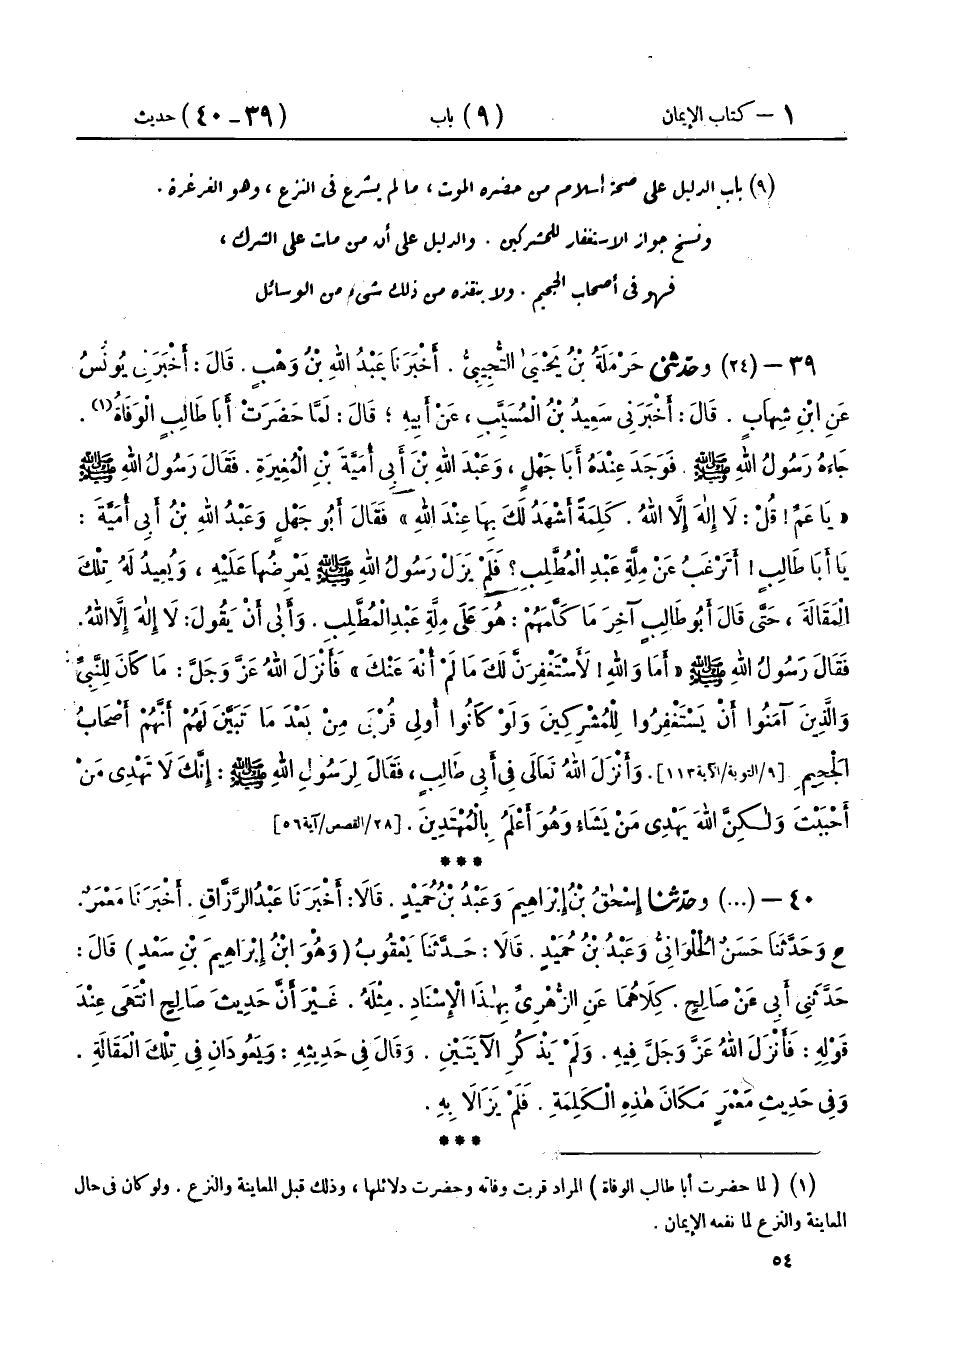 ١ – كتاب الإيمان (٩) باب (٣٩-٤٠) حديث
(٩) باب الدليل على صحة إسلام من حضره الموت ، ما لم يشرع فى النزع ، وهو الغرغرة .
ونسخ جواز الاستغفار للمشركين . والدليل على أن من مات على الشرك ،
فهو فى أصحاب الجحيم . ولا ينقذه من ذلك شىء من الوسائل
٣٩ – (٢٤) وحدثنى حَرْمَلَةُ بْنُ يَحْيَىٰ التُّجِيبِيُّ . أَخْبَرَنَا عَبْدُ اللهِ بْنُ وَهْبٍ . قَالَ : أَخْبَرَنِى يُونُسُ
عَنِ ابْنِ شِهَابٍ . قَالَ : أَخْبَرَنِى سَعِيدُ بْنُ الْمُسَيَّبِ ، عَنْ أَبِيهِ ؛ قَالَ : لَمَّا حَضَرَتْ أَبَا طَالِبٍ الْوَفَاةُ(١) .
جَاءَهُ رَسُولُ اللهِ ﷺ . فَوَجَدَ عِنْدَهُ أَبَا جَهْلٍ ، وَعَبْدَ اللهِ بْنَ أَبِى أُمَيَّةَ بْنِ الْمُغِيرَةِ . فَقَالَ رَسُولُ اللهِ ﷺ
« يَا عَمِّ ! قُلْ : لَا إِلٰهَ إِلَّا اللهُ . كَلِمَةً أَشْهَدُ لَكَ بِهَا عِنْدَ اللهِ » فَقَالَ أَبُو جَهْلٍ وَعَبْدُ اللهِ بْنُ أَبِى أُمَيَّةَ :
يَا أَبَا طَالِبٍ ! أَتَرْغَبُ عَنْ مِلَّةِ عَبْدِ الْمُطَّلِبِ ؟ فَلَمْ يَزَلْ رَسُولُ اللهِ ﷺ يَعْرِضُهَا عَلَيْهِ ، وَيُعِيدُ لَهُ تِلْكَ
الْمَقَالَةَ ، حَتَّى قَالَ أَبُو طَالِبٍ آخِرَ مَا كَلَّمَهُمْ : هُوَ عَلَى مِلَّةِ عَبْدِ الْمُطَّلِبِ . وَأَبَى أَنْ يَقُولَ : لَا إِلٰهَ إِلَّا اللهُ .
فَقَالَ رَسُولُ اللهِ ﷺ « أَمَا وَاللهِ ! لَأَسْتَغْفِرَنَّ لَكَ مَا لَمْ أُنْهَ عَنْكَ » فَأَنْزَلَ اللهُ عَزَّ وَجَلَّ : مَا كَانَ لِلنَّبِيِّ
وَالَّذِينَ آمَنُوا أَنْ يَسْتَغْفِرُوا لِلْمُشْرِكِينَ وَلَوْ كَانُوا أُولِى قُرْبَى مِنْ بَعْدَ مَا تَبَيَّنَ لَهُمْ أَنَّهُمْ أَصْحَابُ
الْجَحِيمِ [٩/التوبة/الآية ١١٣] . وَأَنْزَلَ اللهُ تَعَالَى فِى أَبِى طَالِبٍ ، فَقَالَ لِرَسُولِ اللهِ ﷺ : إِنَّكَ لَا تَهْدِى مَنْ
أَحْبَبْتَ وَلٰكِنَّ اللهَ يَهْدِى مَنْ يَشَاءُ وَهُوَ أَعْلَمُ بِالْمُهْتَدِينَ . [٢٨/القصص/آية ٥٦]
***
٤٠ – (...) وحدثنا إِسْحٰقُ بْنُ إِبْرَاهِيمَ وَعَبْدُ بْنُ حُمَيْدٍ . قَالَا : أَخْبَرَنَا عَبْدُ الرَّزَّاقِ . أَخْبَرَنَا مَعْمَرٌ .
ح وَحَدَّثَنَا حَسَنٌ الْحُلْوَانِيُّ وَعَبْدُ بْنُ حُمَيْدٍ . قَالَا : حَدَّثَنَا يَعْقُوبُ ( وَهُوَ ابْنُ إِبْرَاهِيمَ بْنِ سَعْدٍ ) قَالَ :
حَدَّثَنِى أَبِى عَنْ صَالِحٍ . كِلَاهُمَا عَنِ الزُّهْرِىِّ بِهٰذَا الْإِسْنَادِ . مِثْلَهُ . غَيْرَ أَنَّ حَدِيثَ صَالِحٍ انْتَهَى عِنْدَ
قَوْلِهِ : فَأَنْزَلَ اللهُ عَزَّ وَجَلَّ فِيهِ . وَلَمْ يَذْكُرِ الْآيَتَيْنِ . وَقَالَ فِى حَدِيثِهِ : وَيَعُودَانِ فِى تِلْكَ الْمَقَالَةِ .
وَفِى حَدِيثِ مَعْمَرٍ مَكَانَ هٰذِهِ الْكَلِمَةِ . فَلَمْ يَزَالَا بِهِ .
***
(١) ( لما حضرت أبا طالب الوفاة ) المراد قربت وفاته وحضرت دلائلها ، وذلك قبل المعاينة والنزع . ولو كان فى حال
المعاينة والنزع لما نفعه الإيمان .
٥٤